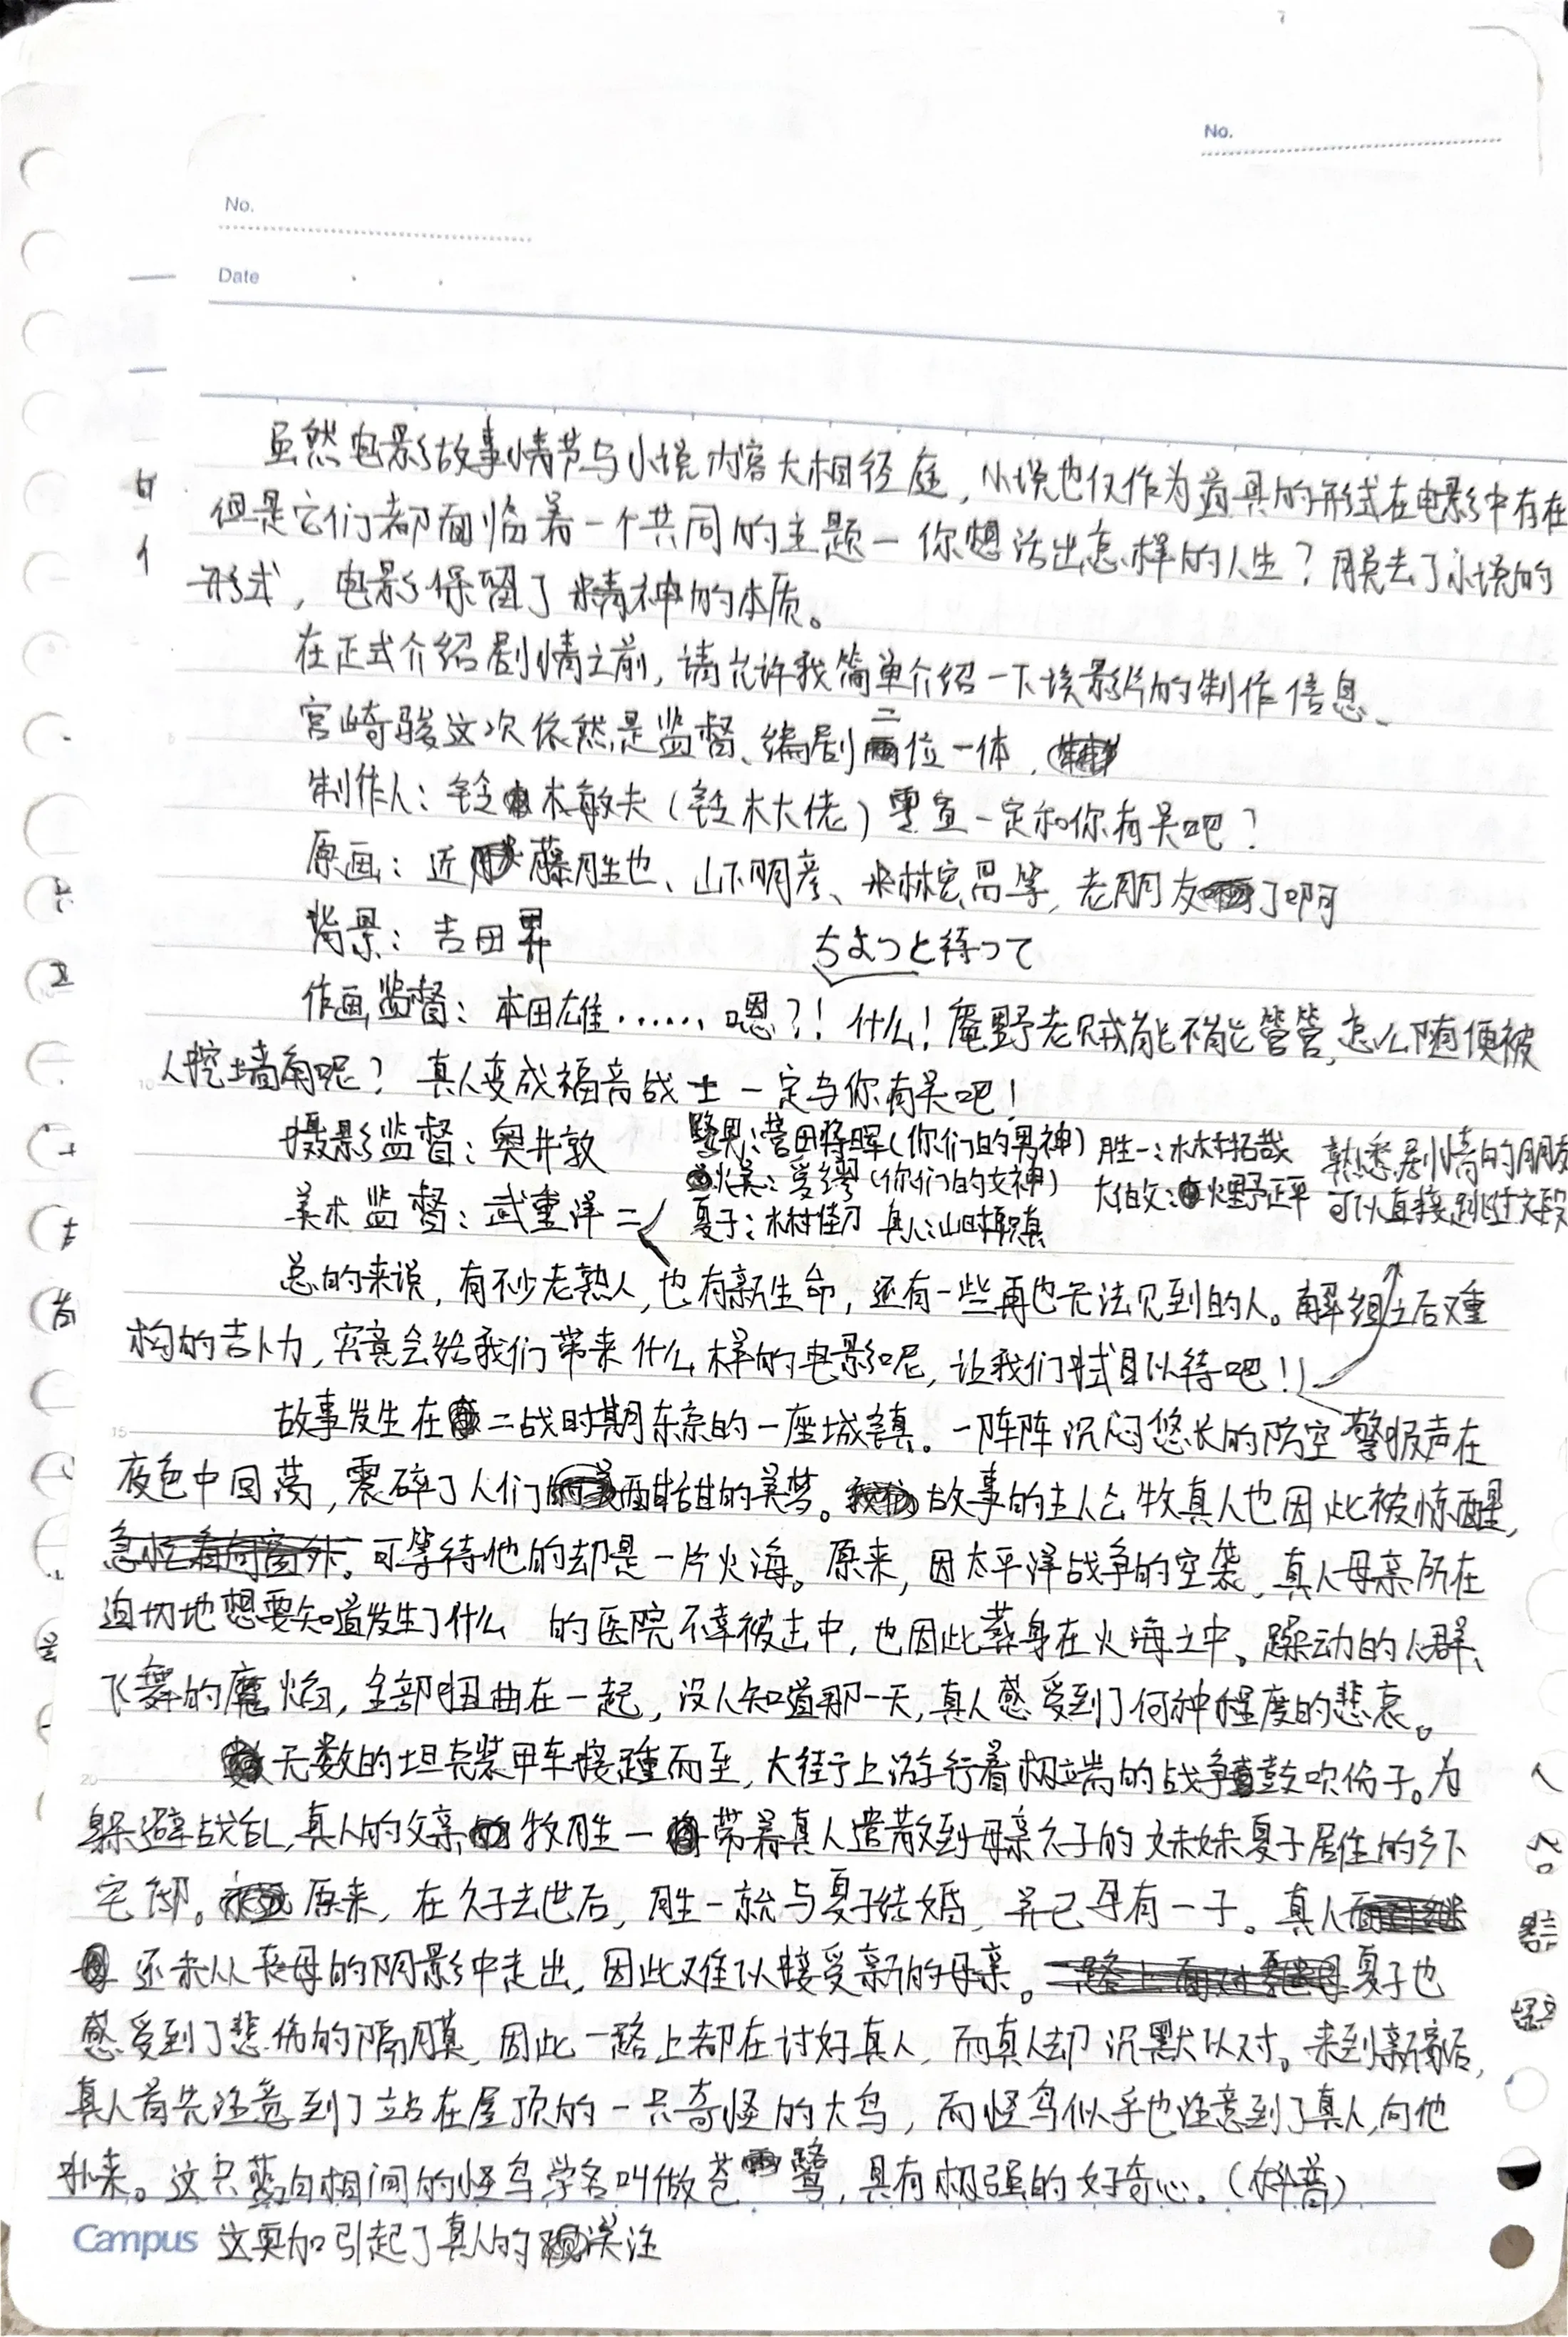 No.
No.
Date
虽然电影故事情节与小说内容大相径庭,小说也仅作为道具的形式在电影中存在
但是它们都面临着一个共同的主题—你想活出怎样的人生?脱去了小说的
形式,电影保留了精神的本质。
在正式介绍剧情之前,请允许我简单介绍一下该影片的制作信息。
宫崎骏这次依然是监督、编剧二位一体.
制作人:铃木敏夫(铃木大佬)零宣一定和你有关吧?
原画:近藤胜也、山下明彦、米林宏昌等,老朋友了啊
背景:吉田昇
ちょっと待って
作画监督:本田雄……嗯?!什么!庵野老贼能不能管管,怎么随便被
人挖墙角呢?真人变成福音战士一定与你有关吧!
摄影监督:奥井敦
苍鹭男:菅田将晖(你们的男神) 胜一:木村拓哉 熟悉剧情的朋友
火美:爱缪(你们的女神) 大伯父:火野正平 可以直接跳过文段
美术监督:武重洋二
夏子:木村佳乃 真人:山时聪真
总的来说,有不少老熟人,也有新生命,还有一些再也无法见到的人。解组之后又重
构的吉卜力,究竟会给我们带来什么样的电影呢,让我们拭目以待吧!
故事发生在二战时期东京的一座城镇。一阵阵沉闷悠长的防空警报声在
夜色中回荡,震碎了人们酣甜的美梦。故事的主人公牧真人也因此被惊醒,
急忙看向窗外。可等待他的却是一片火海。原来,因太平洋战争的空袭,真人母亲所在
迫切地想要知道发生了什么 的医院不幸被击中,也因此葬身在火海之中。躁动的人群、
飞舞的魔焰,全部扭曲在一起,没人知道那一天,真人感受到了何种程度的悲哀。
无数的坦克装甲车接踵而至,大街上游行着极端的战争鼓吹份子。为
躲避战乱,真人的父亲牧胜一带着真人遣散到母亲久子的妹妹夏子居住的乡下
宅邸。原来,在久子去世后,胜一就与夏子结婚,并已孕有一子。真人
还未从丧母的阴影中走出,因此难以接受新的母亲。夏子也
感受到了悲伤的隔膜,因此一路上都在讨好真人,而真人却沉默以对。来到新家后,
真人首先注意到了站在屋顶的一只奇怪的大鸟,而怪鸟似乎也注意到了真人,向他
扑来。这只蓝白相间的怪鸟学名叫做苍鹭,具有极强的好奇心。(科普)
Campus 这更加引起了真人的关注